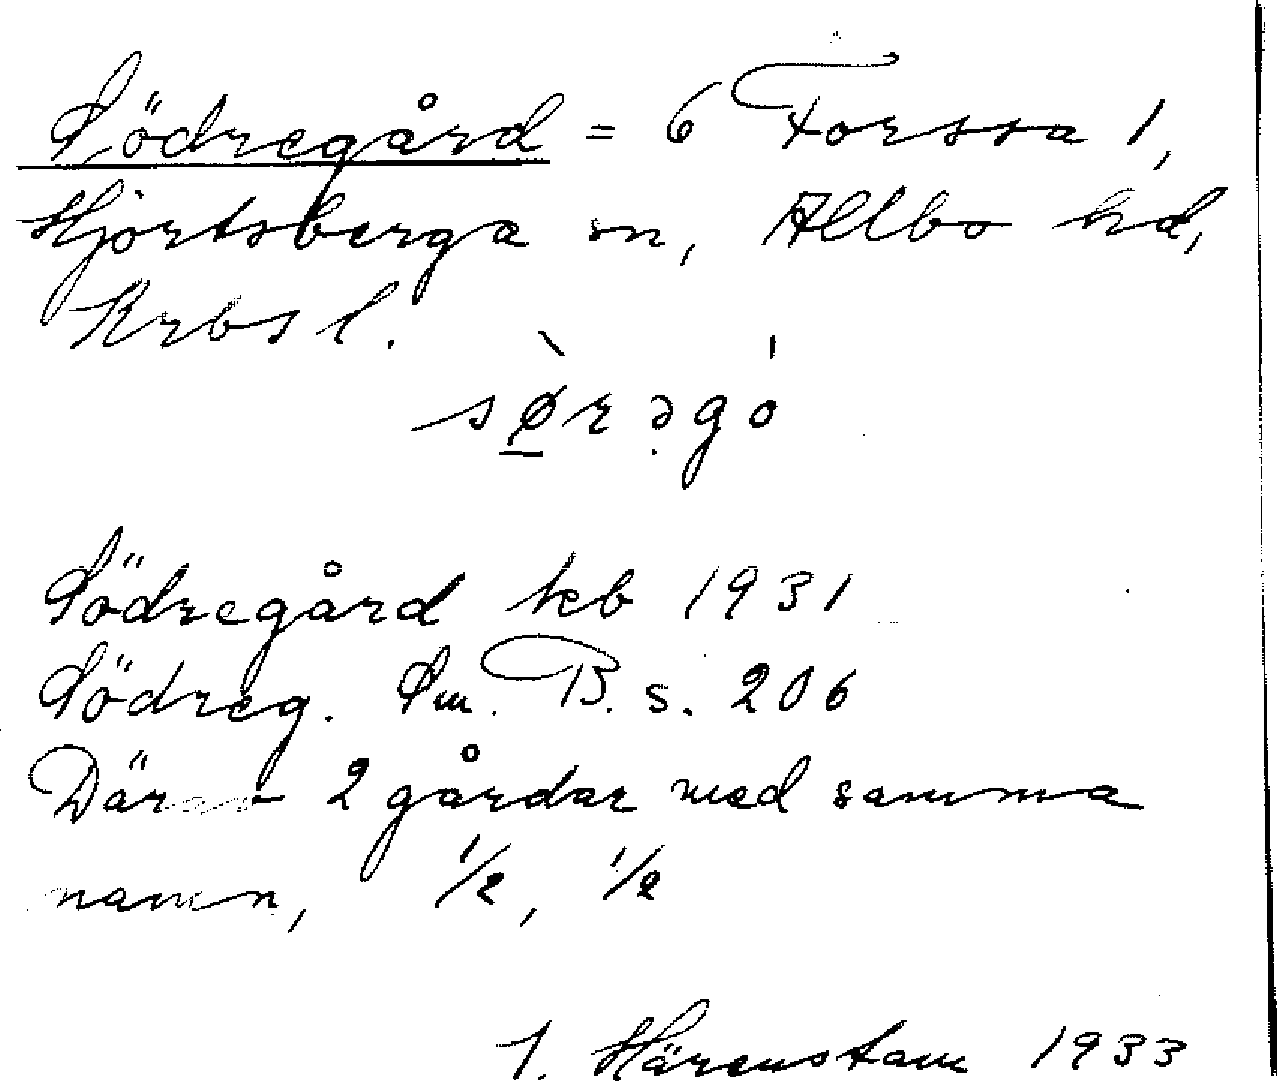 Södregård = 6 Forssa 1,
Hjortsberga sn, Allbo hd,
Krbs l.
sø̠̀rəgó
Södregård teb 1931
Södreg. Sm. B. s. 206
Därav 2 gårdar med samma
namn, 1/2, 1/2
J. Härenstam 1933